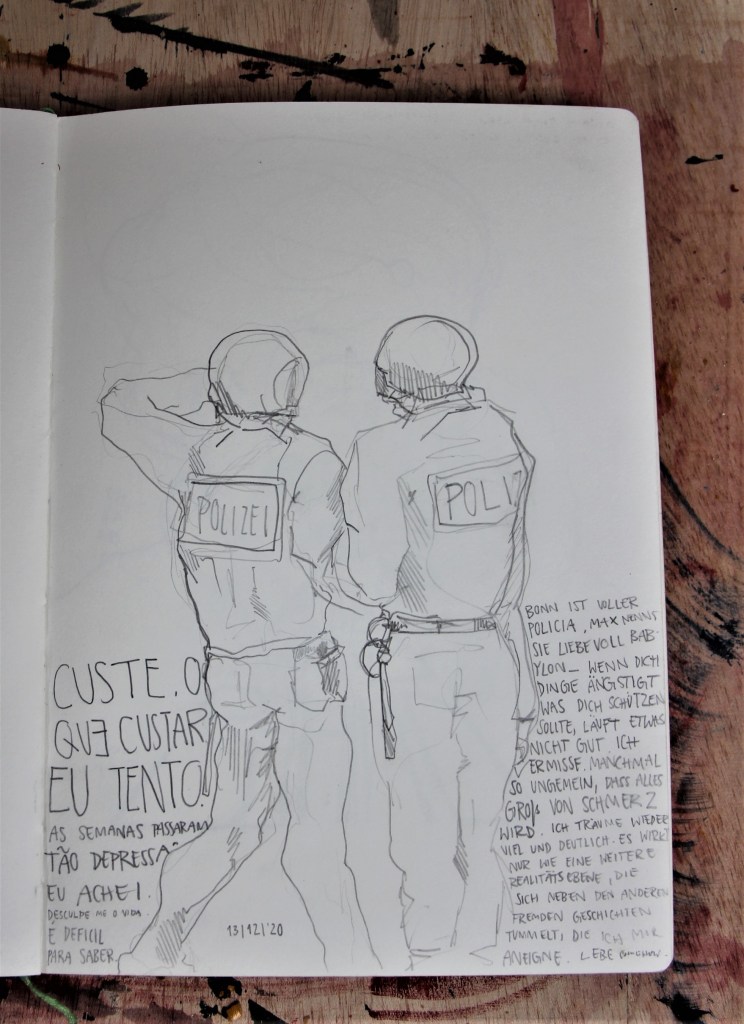 POLIZEI
POLIZ
CUSTE. O
QUE CUSTAR
EU TENTO.
AS SEMANAS PASSARAM
TÃO DEPRESSA
EU ACHEI.
DESCULPE ME O VIDA.
É DEFICIL
PARA SABER
13/12/'20
BONN IST VOLLER
POLICIA, MAX NENNT
SIE LIEBEVOLL BAB-
YLON_ WENN DICH
DINGE ÄNGSTIGT
WAS DICH SCHÜTZEN
SOLLTE, LÄUFT ETWAS
NICHT GUT. ICH
VERMISSE. MANCHMAL
SO UNGEMEIN, DASS ALLES
GROß VON SCHMERZ
WIRD. ICH TRÄUME WIEDER
VIEL UND DEUTLICH. ES WIRKT
NUR WIE EINE WEITERE
REALITÄTSEBENE, DIE
SICH NEBEN DEN ANDEREN
FREMDEN GESCHICHTEN
TUMMELT, DIE ICH MIR
ANEIGNE. LEBE